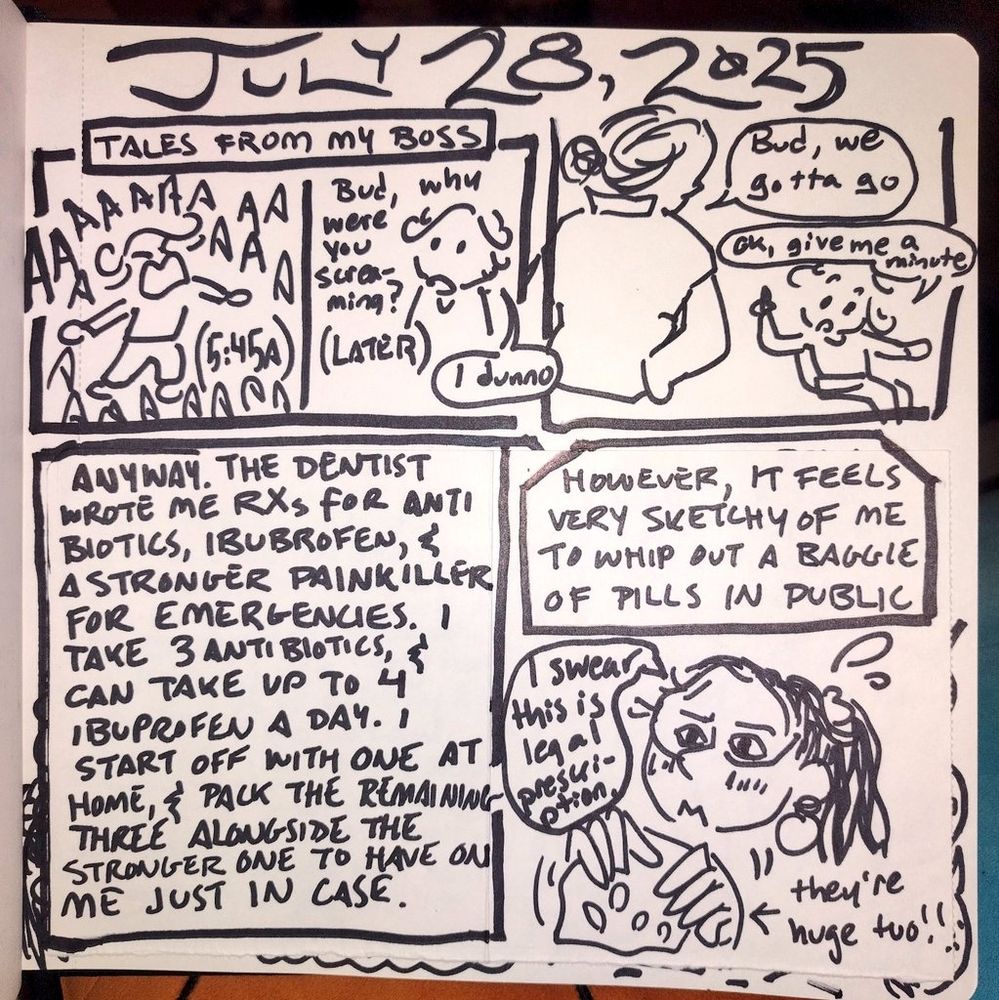 JULY 28, 2025
TALES FROM MY BOSS
AAAAAA AA
AAA AAA
A
(5:45A)
A
AAAAAAAA
Bud, why
were
you
screa-
ming?
(LATER)
I dunno
Bud, we
gotta go
ok, give me a
minute
ANYWAY. THE DENTIST
WROTE ME RXs FOR ANTI
BIOTICS, IBUBROFEN, &
A STRONGER PAINKILLER
FOR EMERGENCIES. I
TAKE 3 ANTIBIOTICS, &
CAN TAKE UP TO 4
IBUPROFEN A DAY. I
START OFF WITH ONE AT
HOME, & PACK THE REMAINING
THREE ALONGSIDE THE
STRONGER ONE TO HAVE ON
ME JUST IN CASE.
HOWEVER, IT FEELS
VERY SKETCHY OF ME
TO WHIP OUT A BAGGIE
OF PILLS IN PUBLIC
I swear
this is
legal
prescri-
ption.
they're
huge too!!